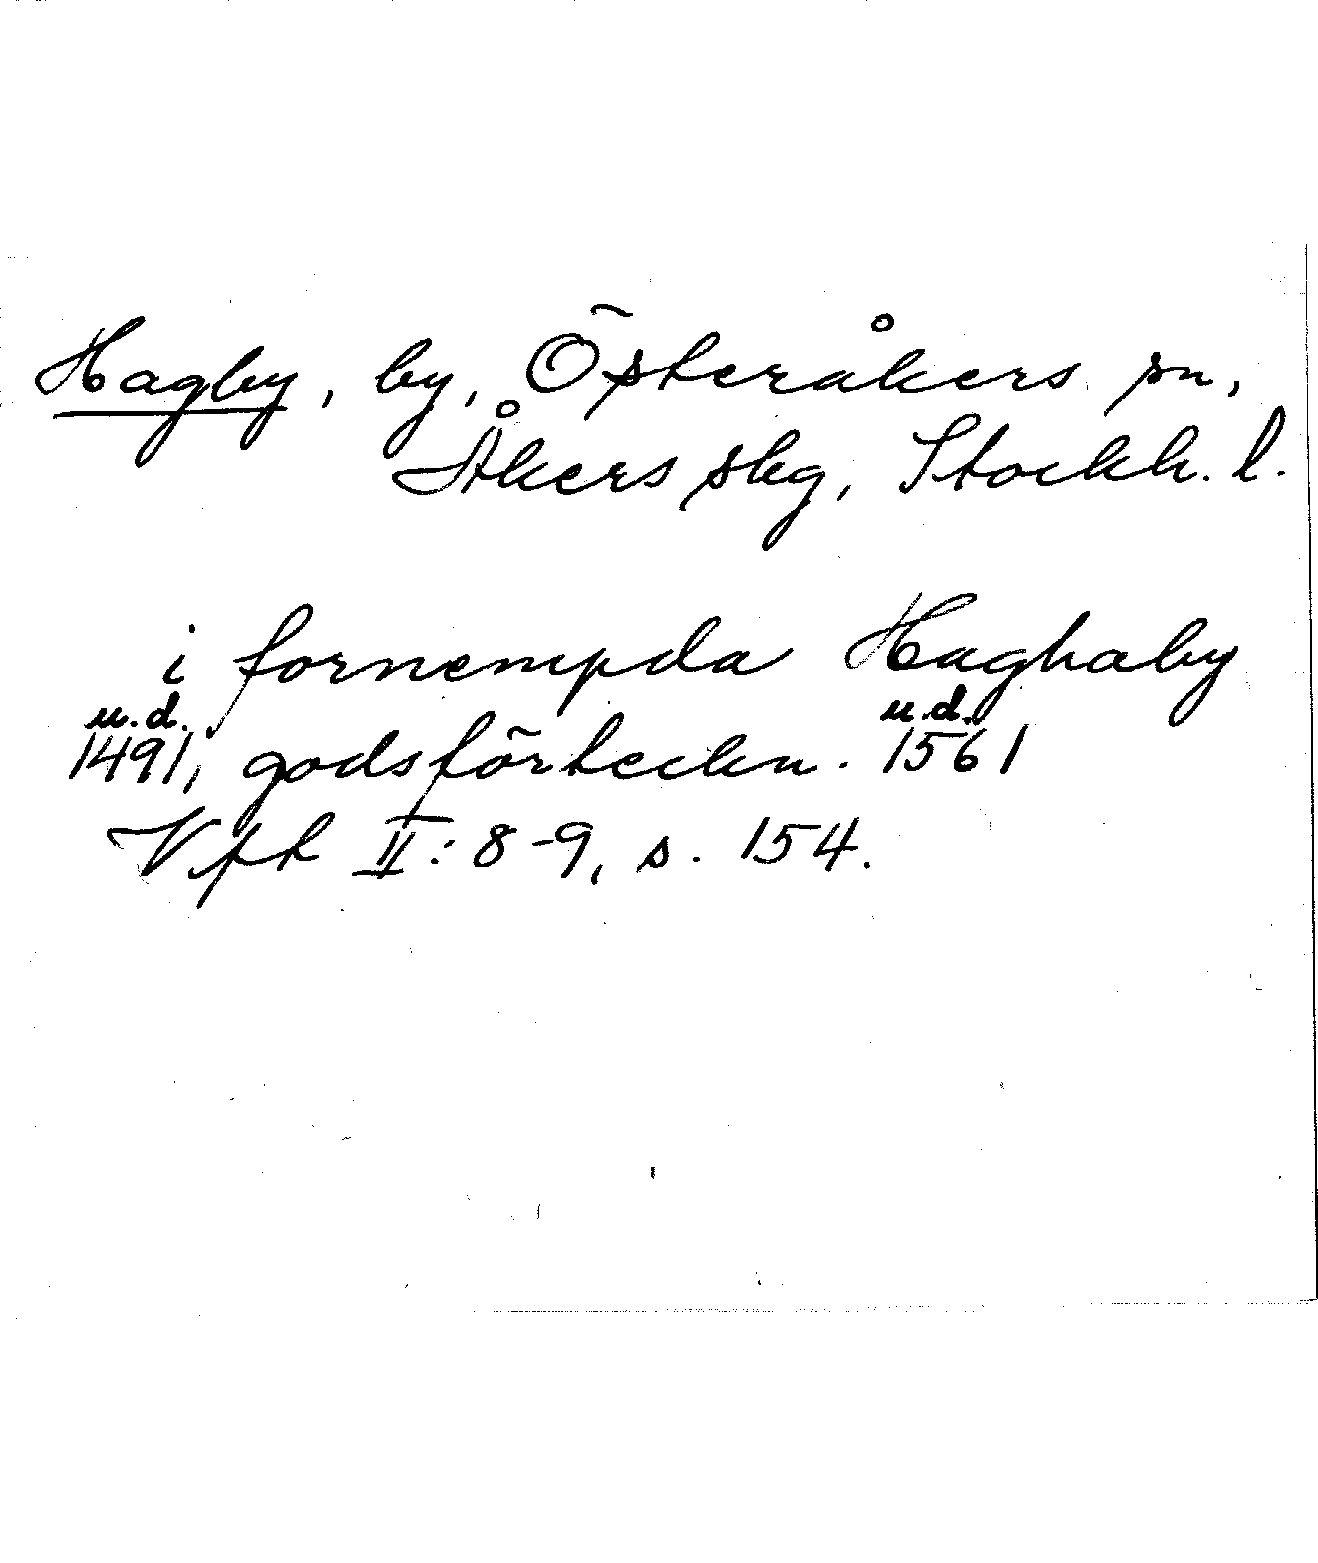 Hagby, by, Österåkers sn,
Åkers skg, Stockh. l.
i fornempda Haghaby
u.d. u.d.
1491, godsförteckn. 1561
Vfl II: 8-9, s. 154.